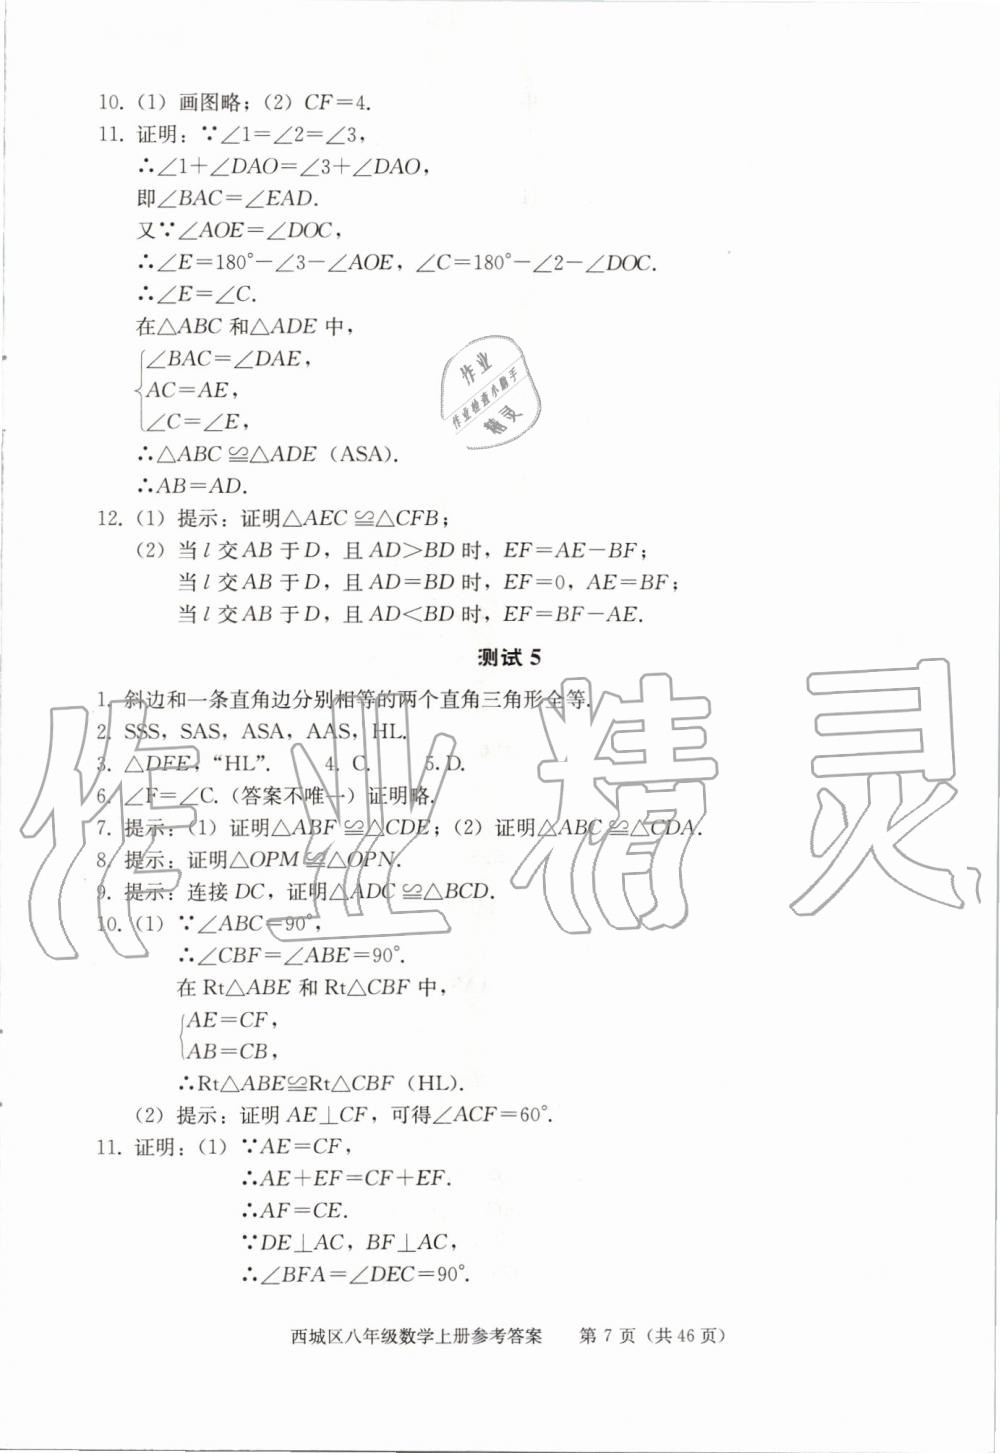 10. (1) 画图略；(2) CF=4.
11. 证明：∵∠1=∠2=∠3，
∴∠1+∠DAO=∠3+∠DAO，
即∠BAC=∠EAD.
又∵∠AOE=∠DOC，
∴∠E=180°-∠3-∠AOE，∠C=180°-∠2-∠DOC.
∴∠E=∠C.
在△ABC 和△ADE 中，
∠BAC=∠DAE，
AC=AE，
∠C=∠E，
作业
作业检查小助手
精灵
∴△ABC≌△ADE (ASA).
∴AB=AD.
12. (1) 提示：证明△AEC≌△CFB；
(2) 当 l 交 AB 于 D，且 AD>BD 时，EF=AE-BF；
当 l 交 AB 于 D，且 AD=BD 时，EF=0，AE=BF；
当 l 交 AB 于 D，且 AD<BD 时，EF=BF-AE.
测试 5
1. 斜边和一条直角边分别相等的两个直角三角形全等.
2. SSS，SAS，ASA，AAS，HL.
3. △DFE，“HL”. 4. C. 5. D.
6. ∠F=∠C.(答案不唯一) 证明略.
7. 提示：(1) 证明△ABF≌△CDE；(2) 证明△ABC≌△CDA.
8. 提示：证明△OPM≌△OPN.
9. 提示：连接 DC，证明△ADC≌△BCD.
10. (1) ∵∠ABC=90°，
∴∠CBF=∠ABE=90°.
在 Rt△ABE 和 Rt△CBF 中，
AE=CF，
AB=CB，
∴Rt△ABE≌Rt△CBF (HL).
(2) 提示：证明 AE⊥CF，可得∠ACF=60°.
11. 证明：(1) ∵AE=CF，
∴AE+EF=CF+EF.
∴AF=CE.
∵DE⊥AC，BF⊥AC，
∴∠BFA=∠DEC=90°.
作业精灵
西城区八年级数学上册参考答案 第 7 页（共 46 页）